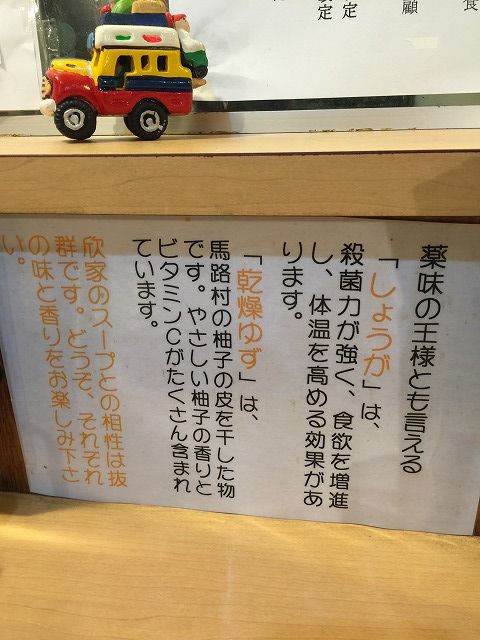 食
顧
定
定
薬味の王様とも言える
「しょうが」は、
殺菌力が強く、食欲を増進
し、体温を高める効果があ
ります。
「乾燥ゆず」は、
馬路村の柚子の皮を干した物
です。やさしい柚子の香りと
ビタミンCがたくさん含まれ
ています。
欣家のスープとの相性は抜
群です。どうぞ、それぞれ
の味と香りをお楽しみ下さ
い。